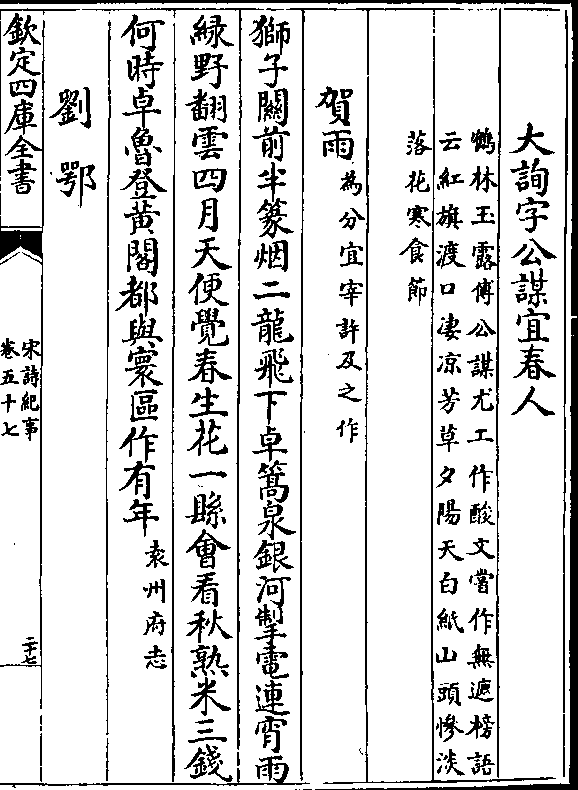 大詢字公謀宜春人
鶴林玉露傅公謀尤工作酸文嘗作無遮榜語
云紅旗渡口淒凉芳草夕陽天白紙山頭慘淡
落花寒食節
賀雨為分宜宰許及之作
獅子關前半篆烟二龍飛下卓篙泉銀河掣電連宵雨
緑野翻雲四月天便覺春生花一縣會看秋熟米三錢
何時卓魯登黄閣都與寰區作有年袁州府志
劉鄂
欽定四庫全書
宋詩紀事
卷五十七
二十七